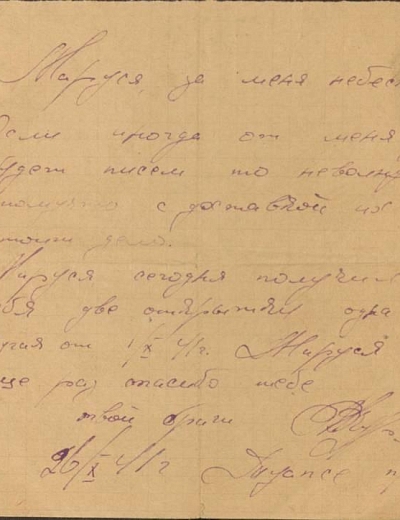 Маруся, за меня небес
если иногда от меня
будет писем то неволну
с доставкой их
дело.
Маруся сегодня получил
тебя две открытки одна
другая от 1/X 41г. Маруся
еще раз спасибо тебе
твой
26/X 41г Туапсе